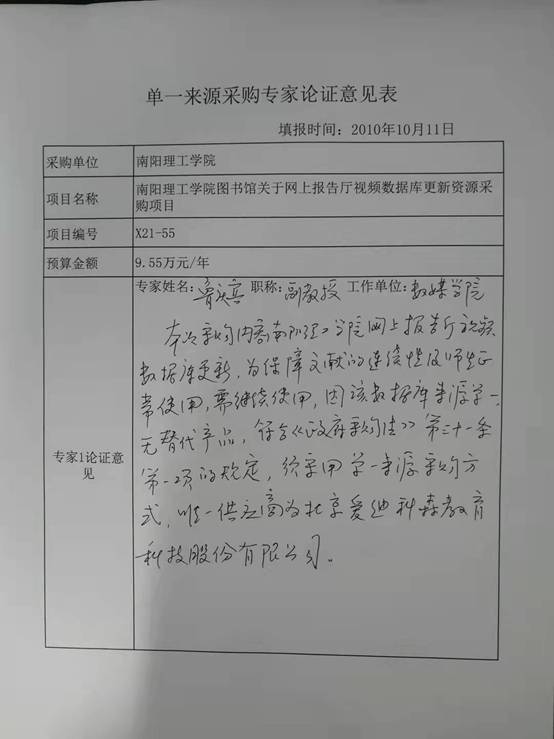 单一来源采购专家论证意见表
填报时间：2010年10月11日
采购单位 南阳理工学院
项目名称 南阳理工学院图书馆关于网上报告厅视频数据库更新资源采
购项目
项目编号 X21-55
预算金额 9.55万元/年
专家姓名： 职称：副教授 工作单位：数媒学院
本次采购内容南阳理工学院网上报告厅视频
数据库更新，为保障文献的连续性及师生正
常使用，需继续使用，因该数据库来源单一，
无替代产品，符合《政府采购法》第三十一条
第一项的规定，须采用单一来源采购方
式，唯一供应商为北京爱迪科森教育
科技股份有限公司。
专家1论证意
见